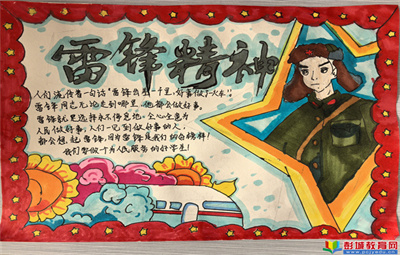 雷锋精神
人们流传着一句话"雷锋出差一千里,好事做了火车"!
雷锋同志无论走到哪里,他都会做好事,
雷锋就是这样永不停息地,全心全意为
人民做好事,人们一见到做好事的人,
都会想起雷锋,因为雷锋是我们的全榜样!
我们要做个为人民服务的好学生!
彭城教育网